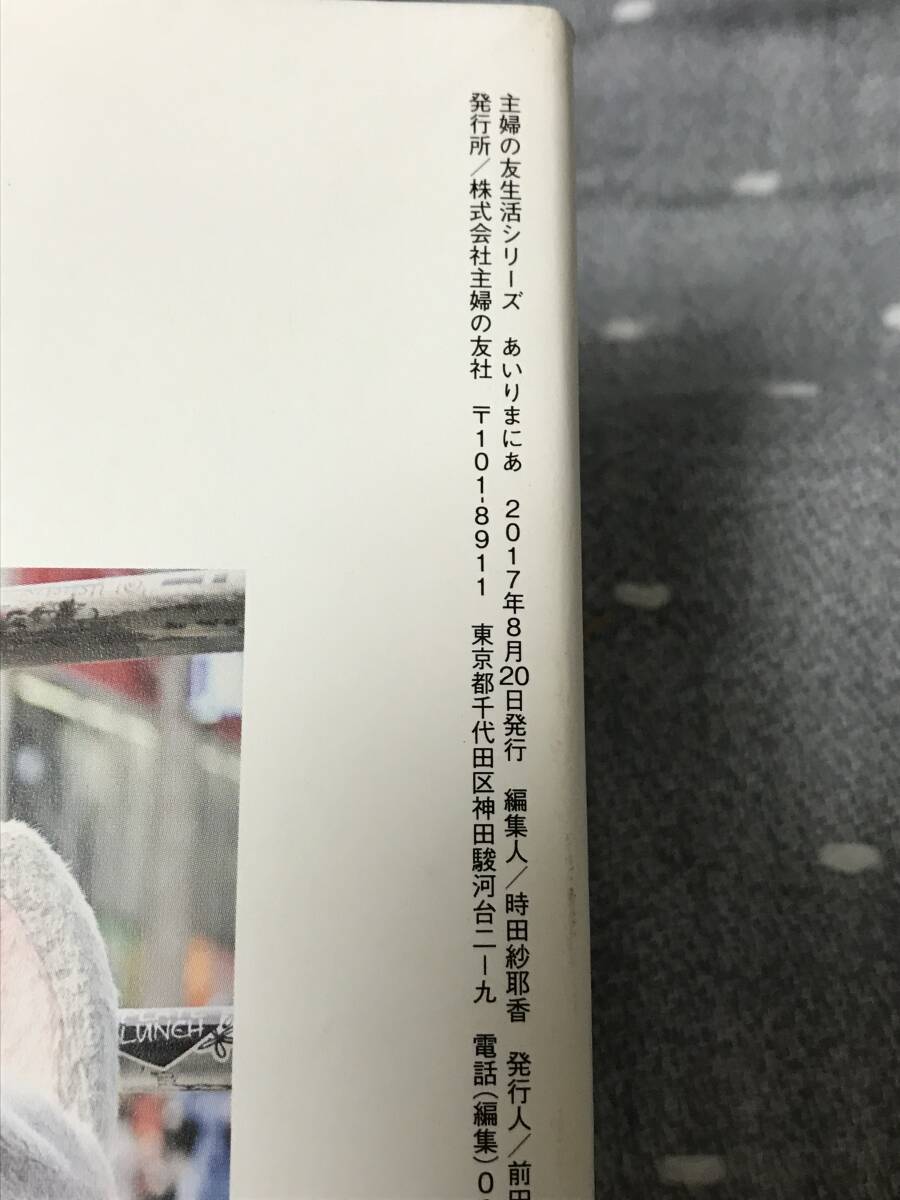 主婦の友生活シリーズ あいりまにあ 2017年8月20日発行 編集人/時田紗耶香 発行人/前田
発行所/株式会社主婦の友社 〒101-8911 東京都千代田区神田駿河台二ー九 電話(編集)0
LUNCH